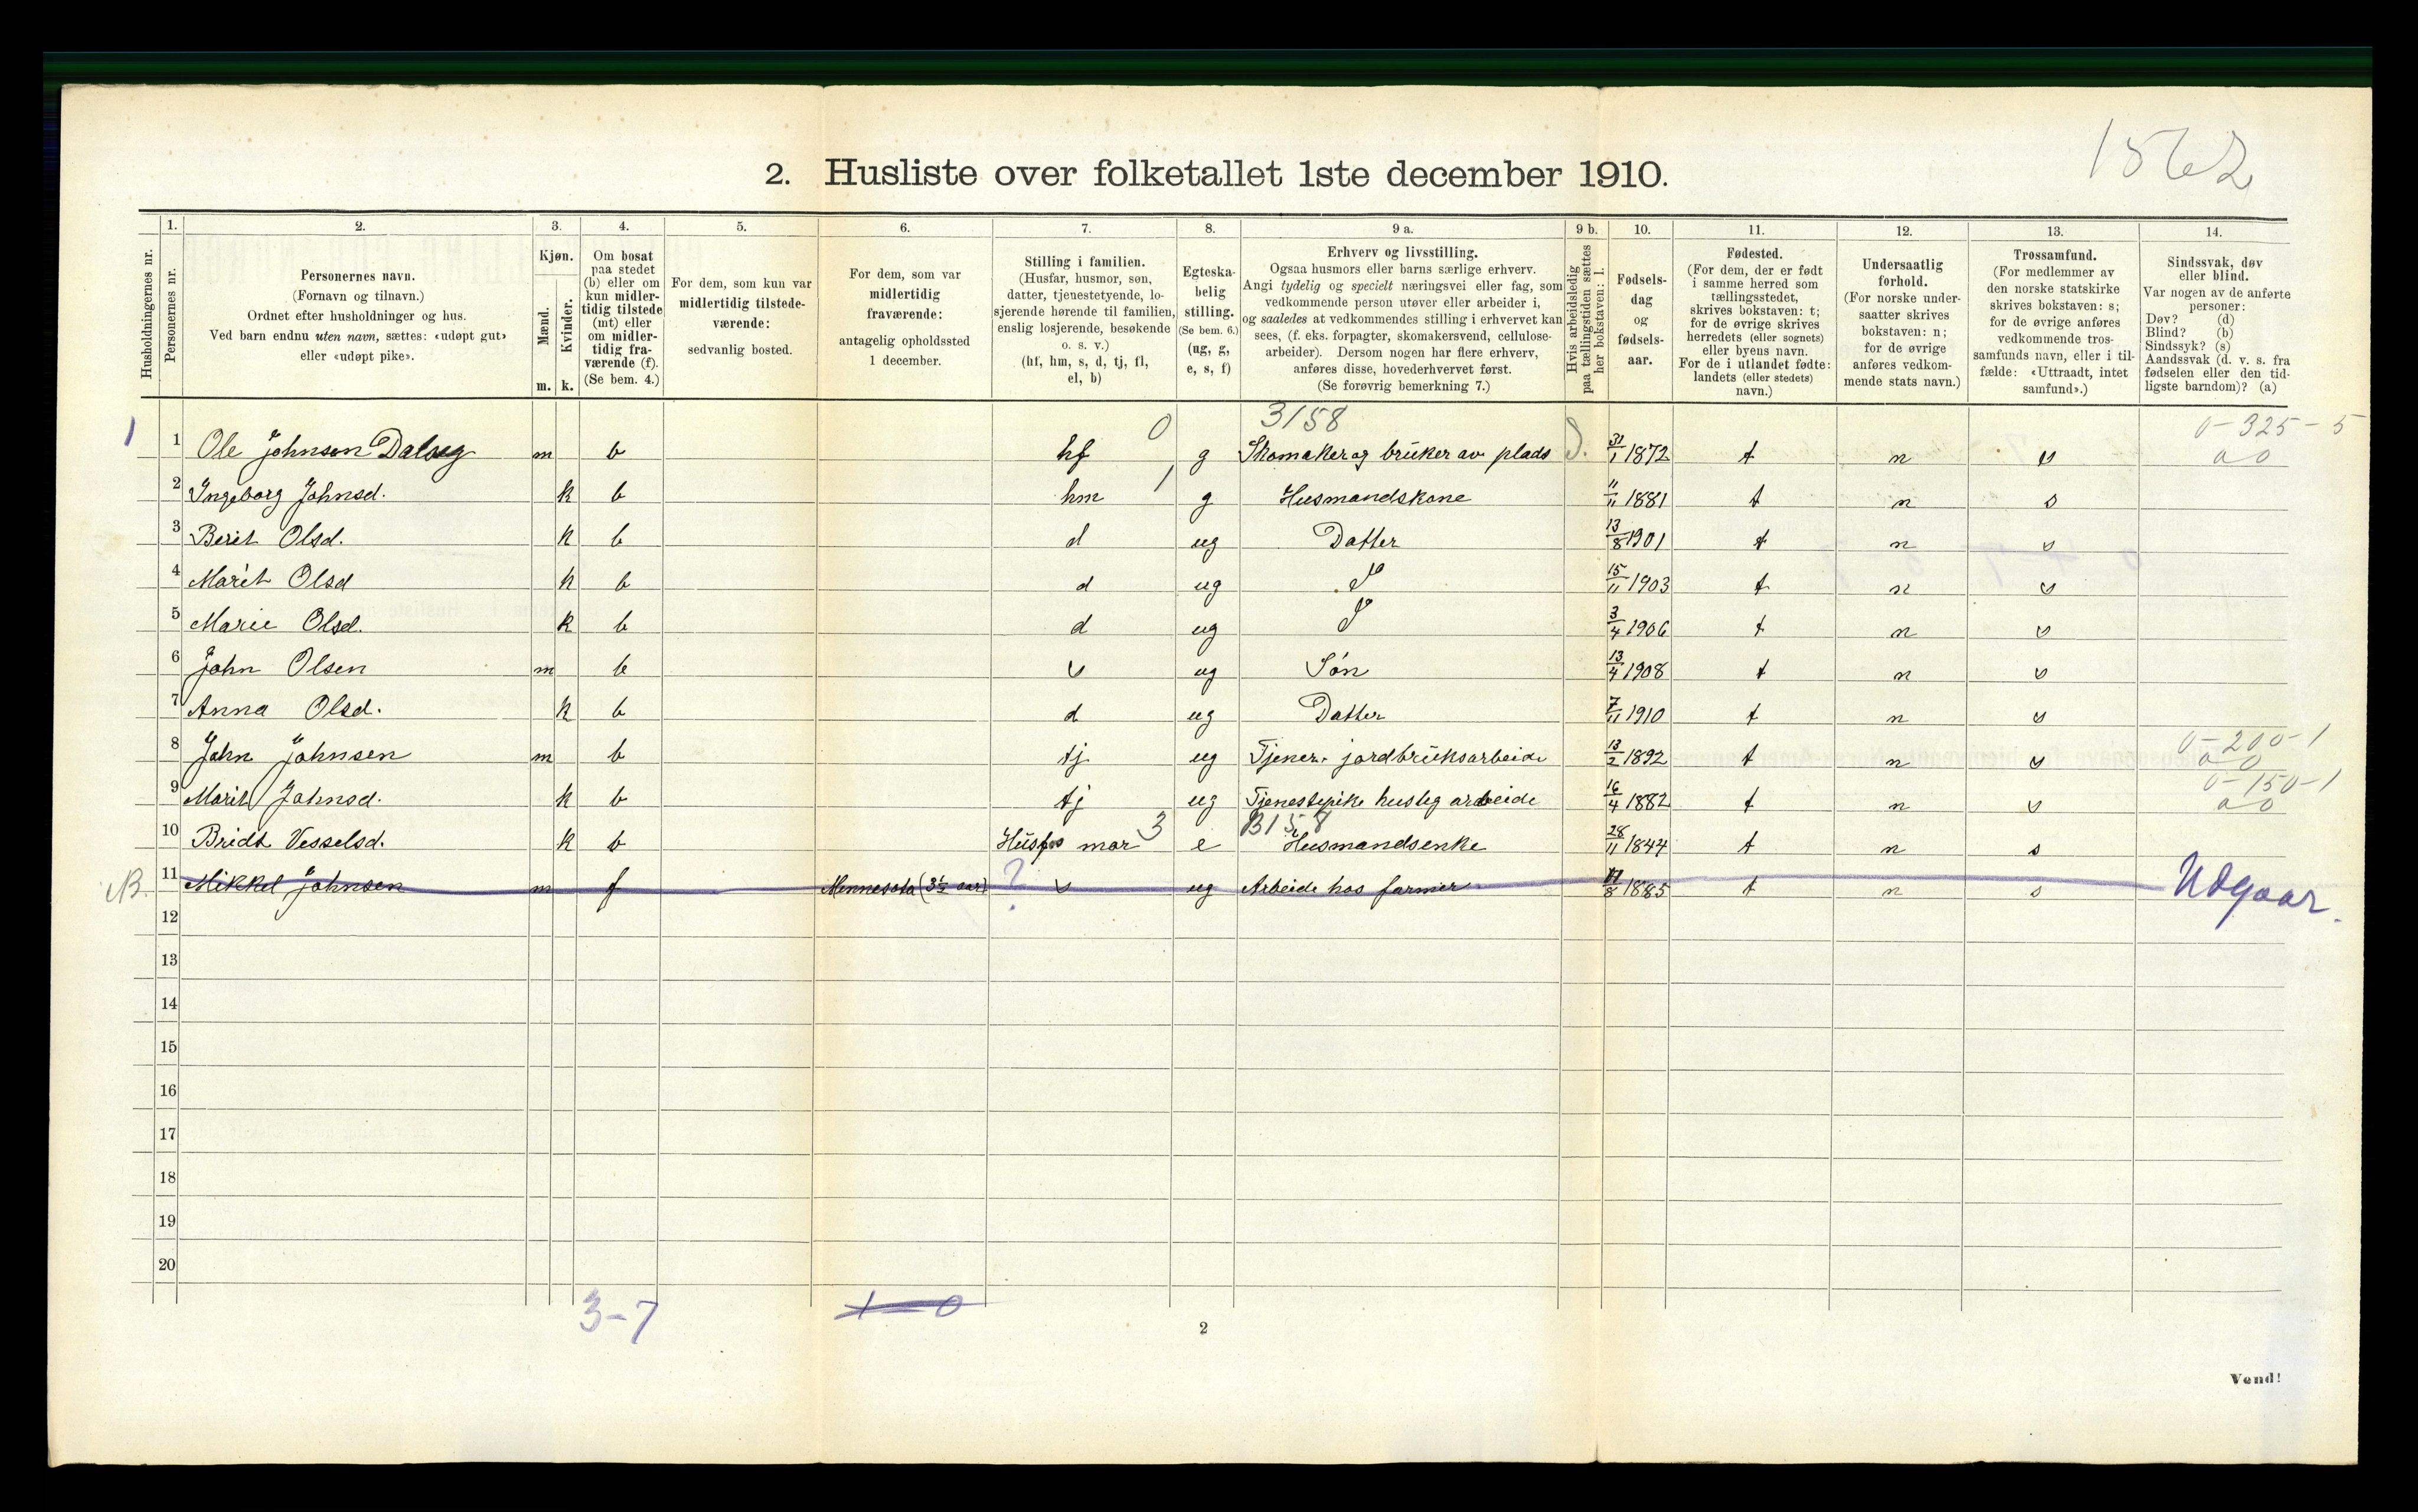 1562
2. Husliste over folketallet 1ste december 1910.
1. 2. 3. 4. 5. 6. 7. 8. 9 a. 9 b. 10. 11. 12. 13. 14.
Husholdningernes nr.
Personernes nr.
Personernes navn.
(Fornavn og tilnavn.)
Ordnet efter husholdninger og hus.
Ved barn endnu uten navn, sættes: «udøpt gut»
eller «udøpt pike».
Kjøn.
Mænd.
Kvinder.
m. k.
Om bosat
paa stedet
(b) eller om
kun midler-
tidig tilstede
(mt) eller
om midler-
tidig fra-
værende (f).
(Se bem. 4.)
For dem, som kun var
midlertidig tilstede-
værende:
sedvanlig bosted.
For dem, som var
midlertidig
fraværende:
antagelig opholdssted
1 december.
Stilling i familien.
(Husfar, husmor, søn,
datter, tjenestetyende, lo-
sjerende hørende til familien,
enslig losjerende, besøkende
o. s. v.)
(hf, hm, s, d, tj, fl,
el, b)
Egteska-
belig
stilling.
(Se bem. 6.)
(ug, g,
e, s, f)
Erhverv og livsstilling.
Ogsaa husmors eller barns særlige erhverv.
Angi tydelig og specielt næringsvei eller fag, som
vedkommende person utøver eller arbeider i,
og saaledes at vedkommendes stilling i erhvervet kan
sees, (f. eks. forpagter, skomakersvend, cellulose-
arbeider). Dersom nogen har flere erhverv,
anføres disse, hovederhvervet først.
(Se forøvrig bemerkning 7.)
Hvis arbeidsledig
paa tællingstiden sættes
her bokstaven: l.
Fødsels-
dag
og
fødsels-
aar.
Fødested.
(For dem, der er født
i samme herred som
tællingsstedet,
skrives bokstaven: t;
for de øvrige skrives
herredets (eller sognets)
eller byens navn.
For de i utlandet fødte:
landets (eller stedets)
navn.)
Undersaatlig
forhold.
(For norske under-
saatter skrives
bokstaven: n;
for de øvrige
anføres vedkom-
mende stats navn.)
Trossamfund.
(For medlemmer av
den norske statskirke
skrives bokstaven: s;
for de øvrige anføres
vedkommende tros-
samfunds navn, eller i til-
fælde: «Uttraadt, intet
samfund».)
Sindssvak, døv
eller blind.
Var nogen av de anførte
personer:
Døv? (d)
Blind? (b)
Sindssyk? (s)
Aandssvak (d. v. s. fra
fødselen eller den tid-
ligste barndom)? (a)
0 3158 0-325-5
1 1 Ole Johnsen Dalseg m b hf g Skomaker og bruker av plads 31/1 1872 t n s a 0
2 Ingeborg Johnsd. k b hm 1 g Husmandskone 11/11 1881 t n s
3 Berit Olsd. k b d ug Datter 13/8 1901 t n s
4 Marit Olsd k b d ug 15/11 1903 t n s
5 Marie Olsd. k b d ug 3/4 1906 t n s
6 John Olsen m b s ug Søn 13/4 1908 t n s
7 Anna Olsd. k b d ug Datter 7/11 1910 t n s
0-200-1
8 John Johnsen m b tj ug Tjener. jordbruksarbeide 13/2 1892 t n s a 0
0-150-1
9 Marit Johnsd. k b tj ug Tjenestepike huslig arbeide 16/4 1882 t n s a 0
3 3158
10 Bridt Vesselsd. k b Husfs mor e Husmandsenke 28/11 1844 t n s
NB. 11 Mikkel Johnsen m f Mennesota (3½ aar) ? s ug Arbeide hos farmer 8 1885 t n s Udgaar.
12
13
14
15
16
17
18
19
20
3-7 1-0
2
Vend!